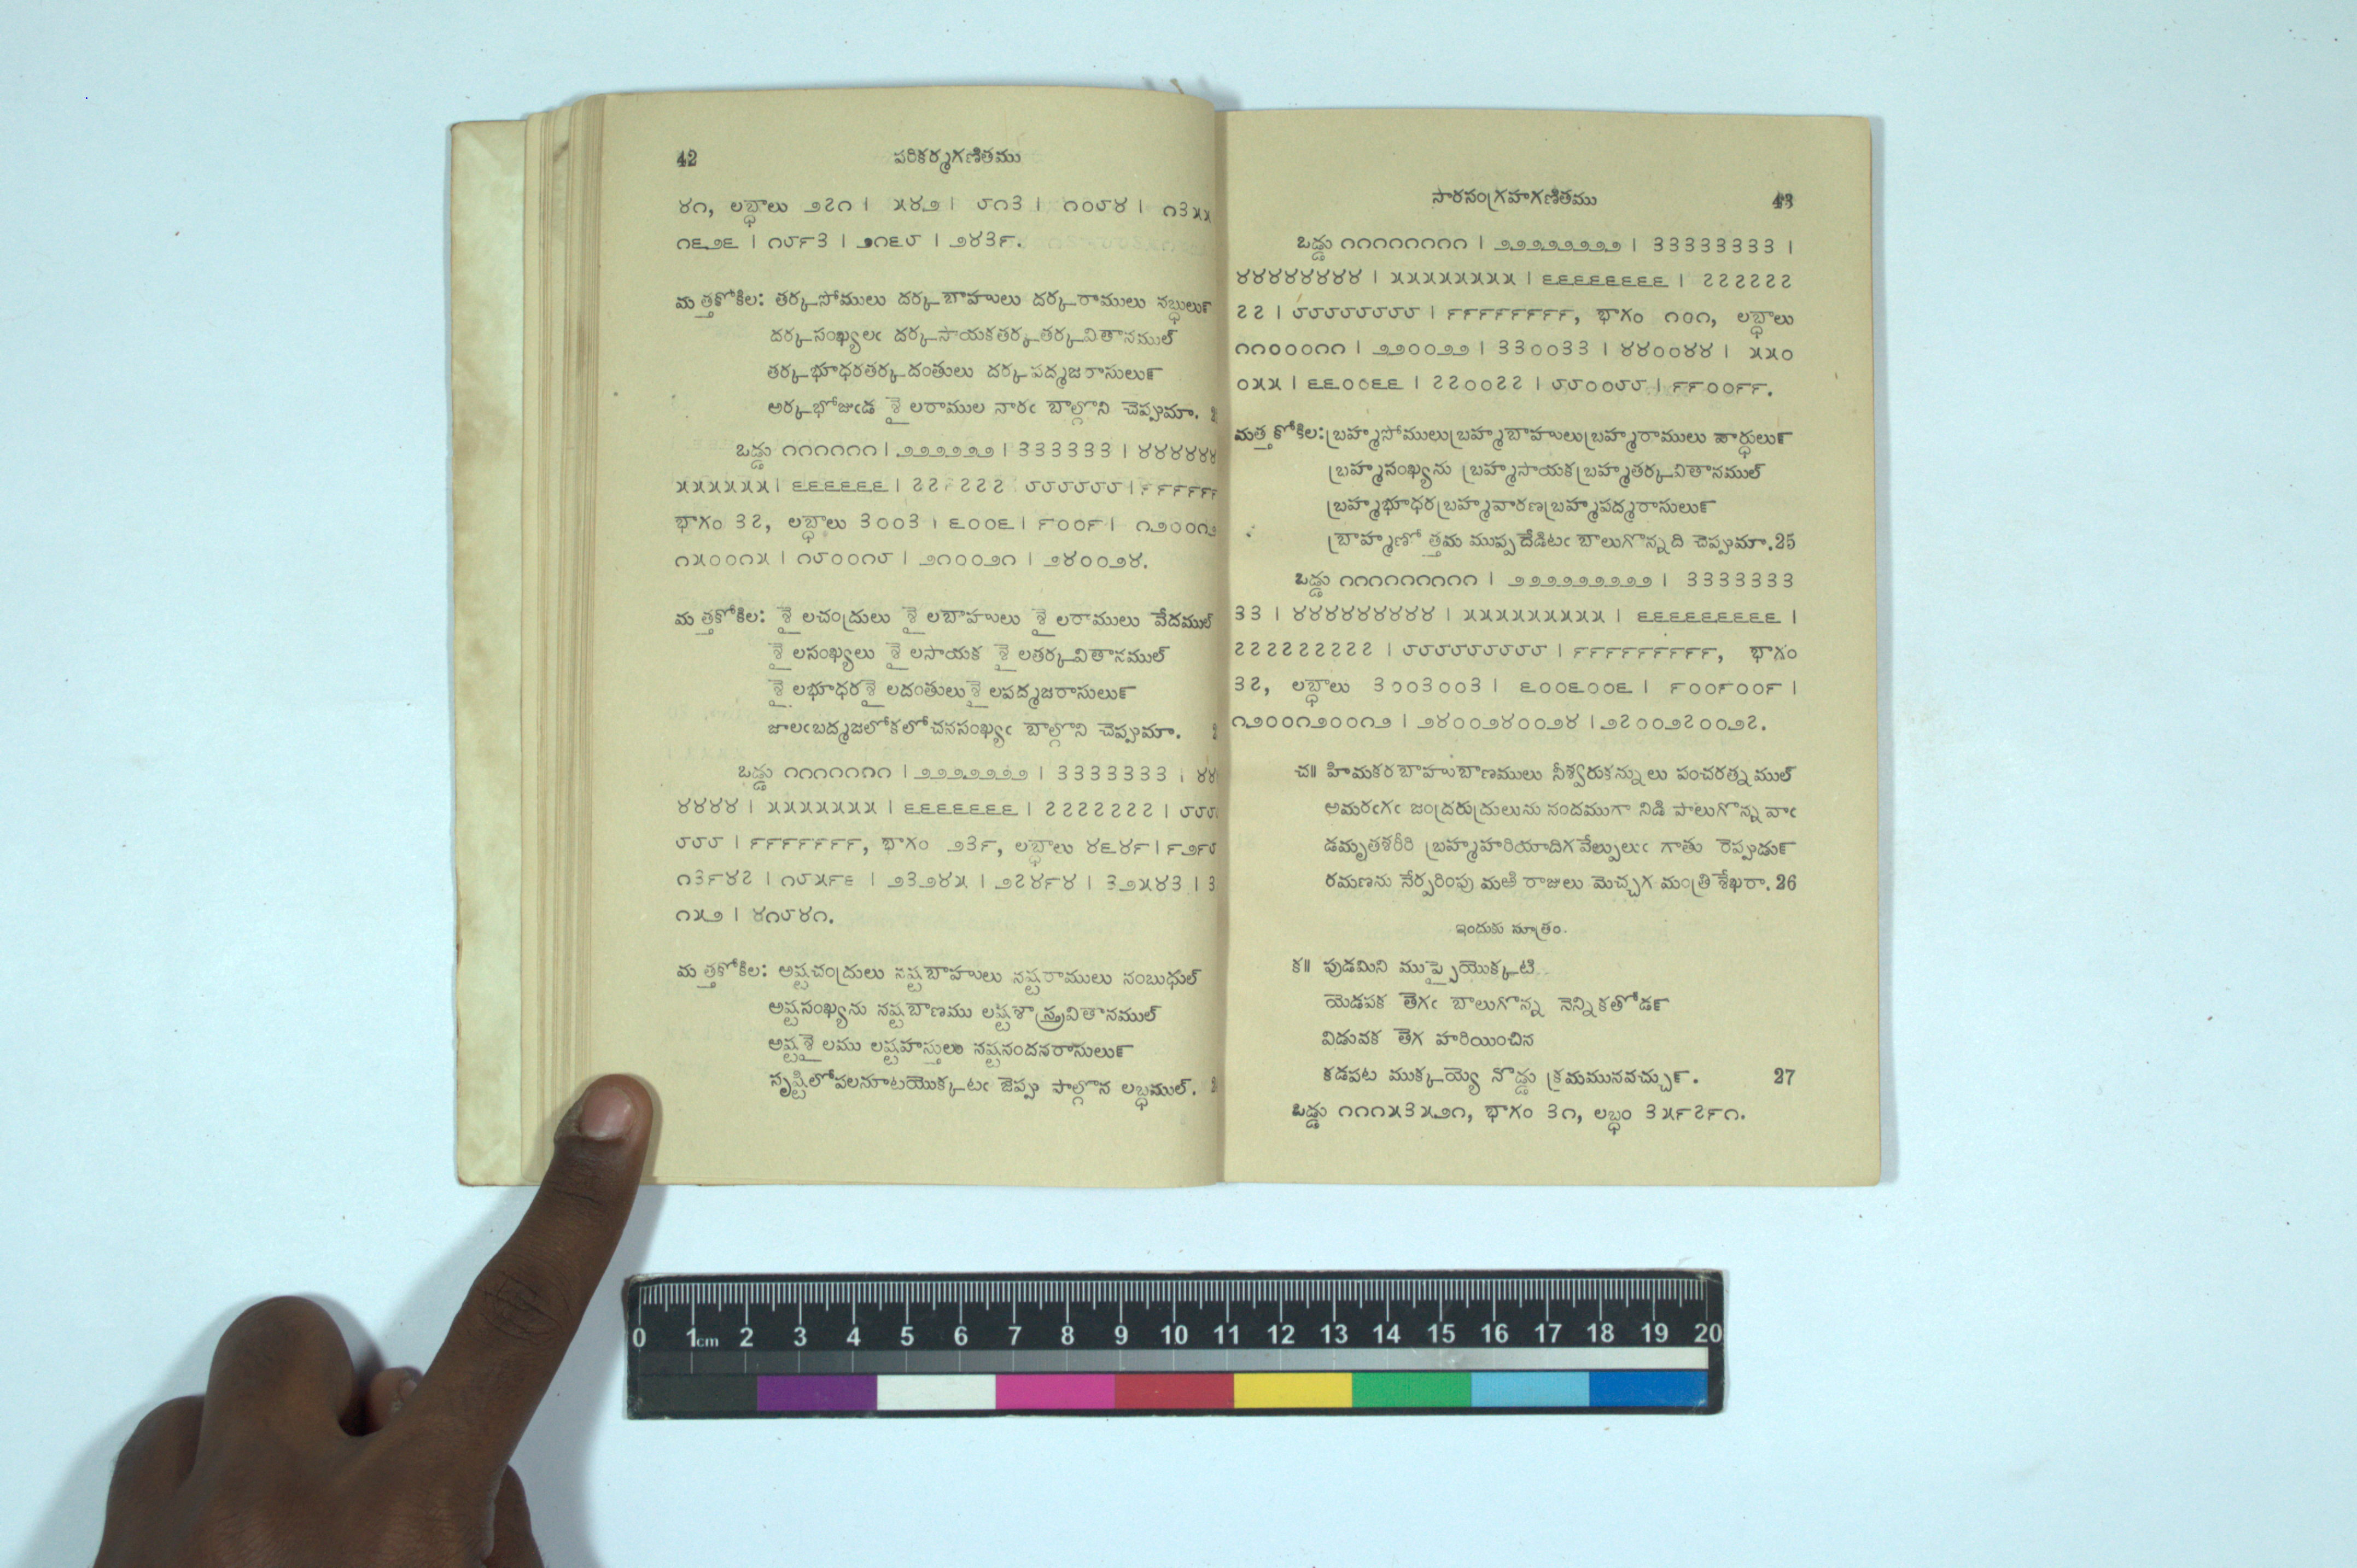 42 పరికర్మగణితము
౪౧, లబ్ధాలు ౨౭౧ । ౫౪౨ । ౮౧౩ । ౧౦౮౪ । ౧౩౫౫
౧౬౨౬ । ౧౮౯౩ । ౨౧౬౮ । ౨౪౩౯.
మత్తకోకిల: తర్కసోములు దర్కబాహులు దర్కరాములు నబ్ధులుఁ
దర్కసంఖ్యలఁ దర్కసాయకతర్కతర్కవితానముల్
తర్కభూధరతర్కదంతులు దర్కపద్మజరాసులుఁ
అర్కభోజుఁడ శైలరాముల నారఁ బాల్గొని చెప్పుమా.
ఒడ్డు ౧౧౧౧౧౧ । ౨౨౨౨౨౨ । ౩౩౩౩౩౩ । ౪౪౪౪౪౪
౫౫౫౫౫౫ । ౬౬౬౬౬౬ । ౭౭౭౭౭౭ ౮౮౮౮౮౮ । ౯౯౯౯౯౯
భాగం ౩౭, లబ్ధాలు ౩౦౦౩ । ౬౦౦౬ । ౯౦౦౯ । ౧౨౦౦౧౨
౧౫౦౦౧౫ । ౧౮౦౦౧౮ । ౨౧౦౦౨౧ । ౨౪౦౦౨౪.
మత్తకోకిల: శైలచంద్రులు శైలబాహులు శైలరాములు వేదముల్
శైలసంఖ్యలు శైలసాయక శైలతర్కవితానముల్
శైలభూధరశైలదంతులు శైలపద్మజరాసులుఁ
జాలఁబద్మజలోకలోచనసంఖ్యఁ బాల్గొని చెప్పుమా.
ఒడ్డు ౧౧౧౧౧౧౧ । ౨౨౨౨౨౨౨ । ౩౩౩౩౩౩౩ । ౪౪
౪౪౪౪ । ౫౫౫౫౫౫౫ । ౬౬౬౬౬౬౬ । ౭౭౭౭౭౭౭ । ౮౮౮
౮౮౮ । ౯౯౯౯౯౯౯, భాగం ౨౩౯, లబ్ధాలు ౪౬౪౯ । ౯౨౯౮
౧౩౯౪౭ । ౧౮౫౯౬ । ౨౩౨౪౫ । ౨౭౮౯౪ । ౩౨౫౪౩ । ౩
౧౫౨ । ౪౧౮౪౧.
మత్తకోకిల: అష్టచంద్రులు నష్టబాహులు నష్టరాములు నంబుధుల్
అష్టసంఖ్యను నష్టబాణము లష్టశాస్త్రవితానముల్
అష్టశైలము లష్టహస్తులు నష్టనందనరాసులుఁ
సృష్టిలోపలనూటయొక్కటఁ జెప్పు పాల్గొన లబ్ధముల్.
సారసంగ్రహగణితము 43
ఒడ్డు ౧౧౧౧౧౧౧౧ । ౨౨౨౨౨౨౨౨ । ౩౩౩౩౩౩౩౩ ।
౪౪౪౪౪౪౪౪ । ౫౫౫౫౫౫౫౫ । ౬౬౬౬౬౬౬౬ । ౭౭౭౭౭౭
౭౭ । ౮౮౮౮౮౮౮౮ । ౯౯౯౯౯౯౯౯, భాగం ౧౦౧, లబ్ధాలు
౧౧౦౦౦౧౧ । ౨౨౦౦౨౨ । ౩౩౦౦౩౩ । ౪౪౦౦౪౪ । ౫౫౦
౦౫౫ । ౬౬౦౦౬౬ । ౭౭౦౦౭౭ । ౮౮౦౦౮౮ । ౯౯౦౦౯౯.
మత్తకోకిల: బ్రహ్మసోములు బ్రహ్మబాహులు బ్రహ్మరాములు వార్ధులుఁ
బ్రహ్మసంఖ్యను బ్రహ్మసాయక బ్రహ్మతర్కవితానముల్
బ్రహ్మభూధర బ్రహ్మవారణ బ్రహ్మపద్మరాసులుఁ
బ్రాహ్మణోత్తమ ముప్పదేడిటఁ బాలుగొన్నది చెప్పుమా. 25
ఒడ్డు ౧౧౧౧౧౧౧౧౧ । ౨౨౨౨౨౨౨౨౨ । ౩౩౩౩౩౩౩
౩౩ । ౪౪౪౪౪౪౪౪౪ । ౫౫౫౫౫౫౫౫౫ । ౬౬౬౬౬౬౬౬౬ ।
౭౭౭౭౭౭౭౭౭ । ౮౮౮౮౮౮౮౮౮ । ౯౯౯౯౯౯౯౯౯, భాగం
౩౭, లబ్ధాలు ౩౦౦౩౦౦౩ । ౬౦౦౬౦౦౬ । ౯౦౦౯౦౦౯ ।
౧౨౦౦౧౨౦౦౧౨ । ౨౪౦౦౨౪౦౦౨౪ । ౨౭౦౦౨౭౦౦౨౭.
చ॥ హిమకరబాహుబాణములు నీశ్వరుకన్నులు పంచరత్నముల్
అమరఁగఁ జంద్రరుద్రులును నందముగా నిడి పాలుగొన్నవాఁ
డమృతశరీరి బ్రహ్మహరియాదిగవేల్పులుఁ గాతు రెప్పుడుఁ
రమణను నేర్పరింపు మఱి రాజులు మెచ్చగ మంత్రిశేఖరా. 26
ఇందుకు సూత్రం.
క॥ పుడమిని ముప్పైయొక్కటి
యెడపక తెగఁ బాలుగొన్న నెన్నికతోడఁ
విడువక తెగ హరియించిన
కడపట ముక్కయ్యె నొడ్డు క్రమమునవచ్చుఁ. 27
ఒడ్డు ౧౧౧౫౩౫౨౧, భాగం ౩౧, లబ్ధం ౩౫౯౭౯౧.